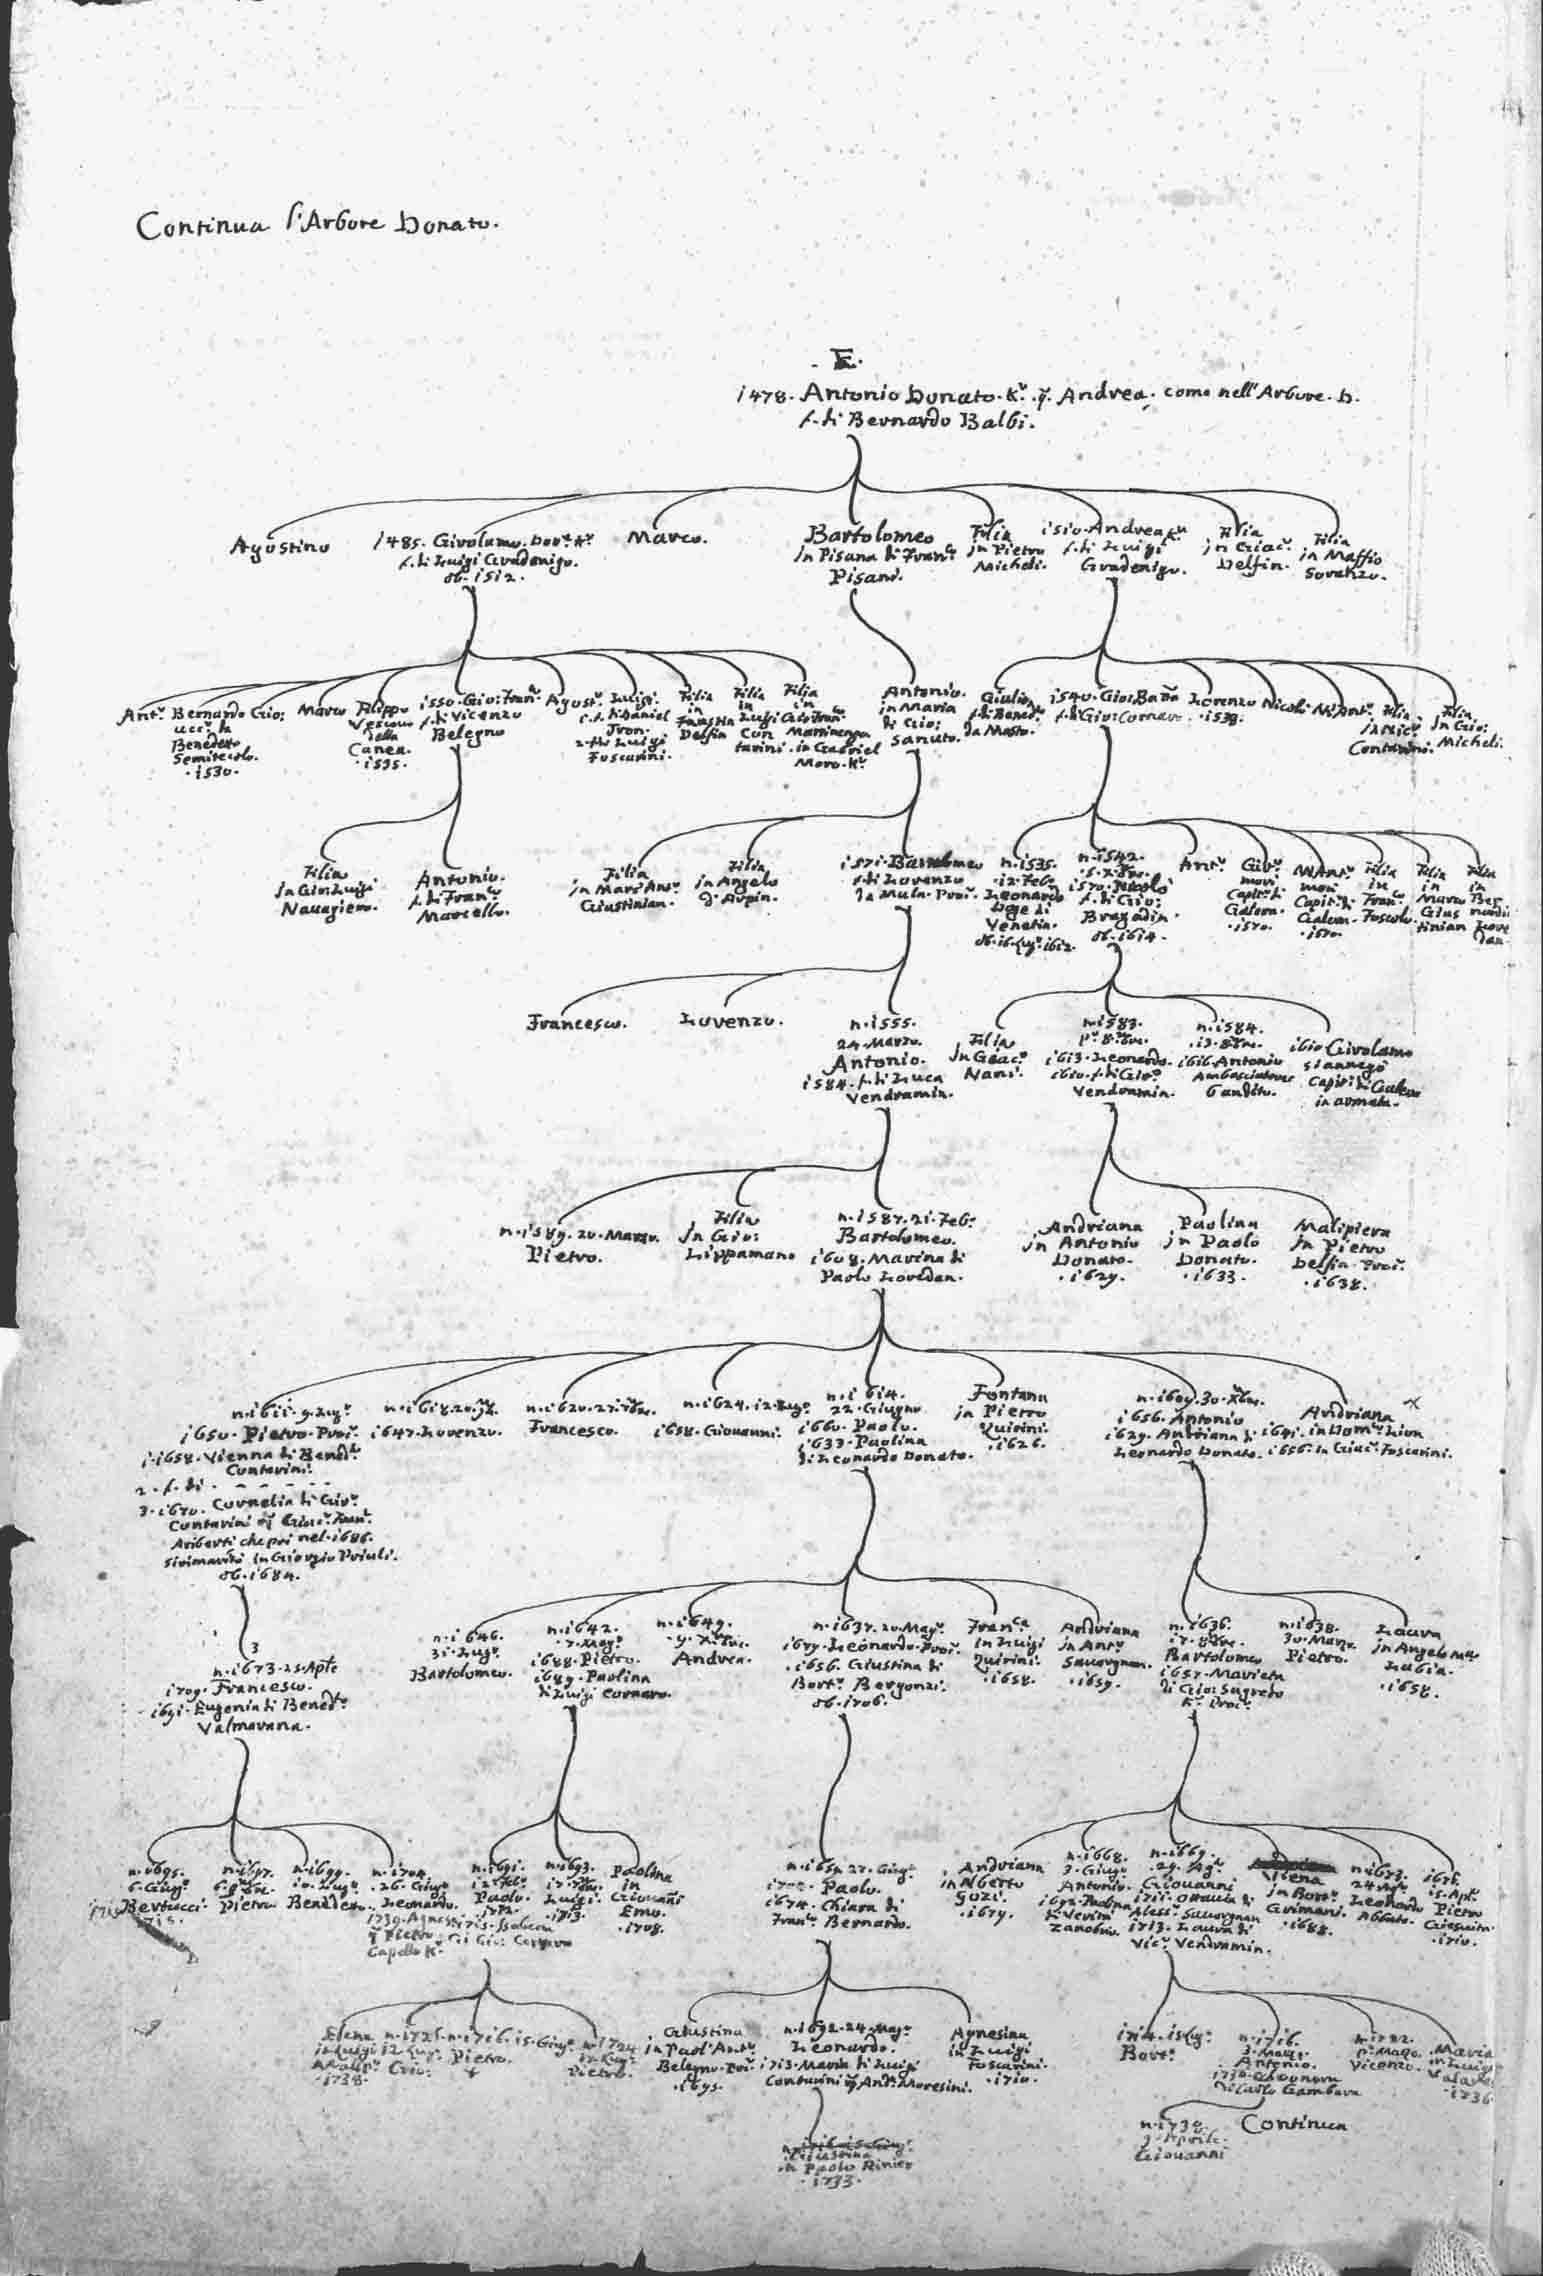 Continua l'Arbore Donato.
E.
1478. Antonio Donato. K.r q. Andrea. come nell'Arbore. D.
f. di Bernardo Balbi.
Agostino
1485. Girolamo. Dot.r K.r
f. di Luigi Gradenigo.
ob. 1512.
Marco.
Bartolomeo
in Pisana di Franc.o
Pisani.
Filia
in Pietro
Micheli.
1510. Andrea K.r
f. di Luigi
Gradenigo.
Filia
in Giac.o
Delfin.
Filia
in Maffio
Soranzo.
Ant.o
Bernardo
ucc.o da
Benedetto
Semitecolo.
1530.
Gio:
Marco
Filippo
Vescovo
della
Canea.
1535.
1550. Gio: Fran.o
f. di Vicenzo
Belegno
Agost.o
Luigi.
1. f. di Daniel
Tron.
2. f. di Luigi
Foscarini.
Filia
in
Faustin
Delfin
Filia
in
Luigi
Con
tarini.
Filia
in
Martinengo
in Gabriel
Moro. K.r
Antonio.
in Maria
di Gio:
Sanuto.
Giulio
f. di Bened.o
da Mosto.
1540. Gio: Batta
f. di Gio: Cornaro.
Lorenzo
1538.
Nicolò
M. Ant.o
Filia
in Nic.o
Contarini.
Filia
in Gio:
Micheli.
Filia
in Gio: Luigi
Navagiero.
Antonio.
f. di Fran.co
Marcello.
Filia
in Marc'Ant.o
Giustinian.
Filia
in Angelo
d'Avpin.
1571. Bartolomeo
f. di Lorenzo
da Mula. Proc.r
n. 1535.
12. Feb.o
Leonardo
Doge di
Venetia.
ob. 16. Lug.o 1612.
n. 1542.
1570. Nicolò
f. di Gio:
Bragadin.
ob. 1614.
Ant.o
Gir.mo
morì
Capit.o di
Galera.
1570.
M. Ant.o
morì
Capit.o di
Galera.
1570.
Filia
in
Fran.co
Foscolo.
Filia
in
Marco
Gius
tinian
Filia
in
Ber
nardin
Lore
dan
Francesco.
Lorenzo.
n. 1555.
24. Marzo.
Antonio.
1584. f. di Luca
Vendramin.
Filia
in Giac.o
Nani.
n. 1583.
P.o 8.bre.
1613. Leonardo.
1610. f. di Gio:
Vendramin.
n. 1584.
13. 8bre.
1616. Antonio
Ambasciatore
bandito.
1610 Girolamo
si annegò
Capit. di Galera
in armata.
n. 1589. 20. Marzo.
Pietro.
Filia
in Gio:
Lippamano
n. 1587. 21. Feb.o
Bartolomeo.
1608. Marina di
Paolo Loredan.
Andriana
in Antonio
Donato.
1629.
Paolina
in Paolo
Donato.
1633.
Malipiera
in Pietro
Delfin. Proc.r
1638.
n. 1611. 9. Lug.o
1650. Pietro. Proc.r
1. 1658. Vienna di Bened.o
Contarini.
2. f. di - - - - - -
3. 1670. Cornelia di Gir.o
Contarini q. Giac.o Fran.o
Ariberti che poi nel. 1686.
si rimaritò in Giorgio Priuli.
ob. 1684.
n. 1618. 20.
1647. Lorenzo.
n. 1620. 27. 7bre.
Francesco.
n. 1624. 12. Lug.o
1658. Giovanni.
n. 1614.
22. Giugno
1660. Paolo.
1633. Paolina
di Leonardo Donato.
Fontana
in Pietro
Quirini.
1626.
n. 1609. 30. Xbre.
1656. Antonio
1629. Andriana di
Leonardo Donato.
x
Andriana
1641. in Dom.o Lion
1656. in Giac.o Foscarini.
3
n. 1673. 25. Aple
1709. Francesco.
1691. Eugenia di Bened.o
Valmarana.
n. 1646.
31. Lug.o
Bartolomeo.
n. 1642.
7. Mag.o
1688. Pietro.
1689. Paolina
di Luigi Cornaro.
n. 1649.
9. Xbre.
Andrea.
n. 1637. 20. Mag.o
1679. Leonardo. Proc.r
1656. Giustina di
Bort.o Bergonzi.
ob. 1706.
Fran.ca
in Luigi
Quirini.
1658.
Andriana
in Ant.o
Savorgnan.
1659.
n. 1636.
17. 8bre.
Bartolomeo
1657. Marieta
di Gio: Sagredo
K.r Proc.r
n. 1638.
30. Marzo
Pietro.
Laura
in Angelo M.a
Labia.
1658.
n. 1695.
6. Giug.o
Bertucci.
1715.
n. 1697.
6. 8bre.
Pietro
n. 1699.
10. Lug.o
Benedetto.
n. 1704
26. Giug.o
Leonardo.
1739. Agnese
q. Pietro
Capello K.r
n. 1691.
12. Feb.o
Paolo.
1712.
1715. Isabetta
di Gio: Cornaro
n. 1693.
17. 7bre.
Luigi.
1713.
Paolina
in
Giovanni
Emo.
1708.
n. 1659. 27. Giug.o
1702. Paolo.
1674. Chiara di
Fran.co Bernardo.
Andriana
in Alberto
Gozi.
1679.
n. 1668.
3. Giug.o
Antonio.
1692. Paolina
di Verità
Zanobio.
n. 1669.
29. Ag.o
Giovanni
1711. Ottavia di
Aless.o Savorgnan
1713. Laura di
Vic.o Vendramin.
Elena
in Bort.o
Grimani.
1688.
n. 1673.
24 Ag.o
Leonardo
Abbate.
1675.
15. Apr.e
Pietro
Giesuita.
1710.
Elena
in Luigi
1738.
n. 1725.
12. Lug.o
Gio:
n. 1716. 15. Giug.o
Pietro.
+
n. 1724
17. Lug.o
Pietro.
Giustina
in Paol'Ant.o
Belegno. Proc.r
1695.
n. 1692. 24. Mag.o
Leonardo.
1713. Maria di Luigi
Contarini q. And.a Moresini.
Agnesina
in Luigi
Foscarini.
1710.
1714. 15. Lug.o
Bort.o
n. 1716.
3. Marzo
Antonio.
1736. Eleonora
di Carlo Gambara
n. 1722.
P.o Marzo.
Vicenzo.
Maria
in Luigi
1736.
Giustina
in Paolo Rinier
1733.
n. 1738.
9. Aprile.
Giovanni
Continua